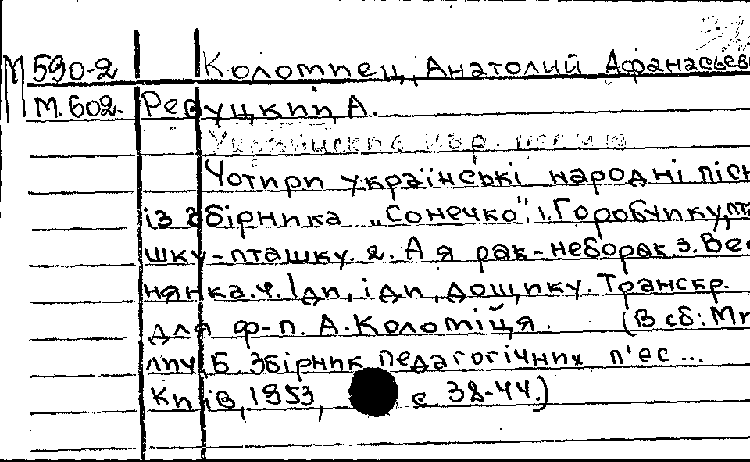 М 590-2 Коломиец, Анатолий Афанасьев
М.602. Ревуцкий, А.
Чотири українські народні пісн
із збірника „Сонечко": 1. Горобчику, пта
шку-пташку. 2. А я рак-неборак 3. Вес
нянка. 4. Іди, іди, дощику. Транскр.
для ф-п. А. Коломійця. (В сб: Ми
лич Б. Збірник педагогічних п'ес...
Київ, 1953, с 38-44.)